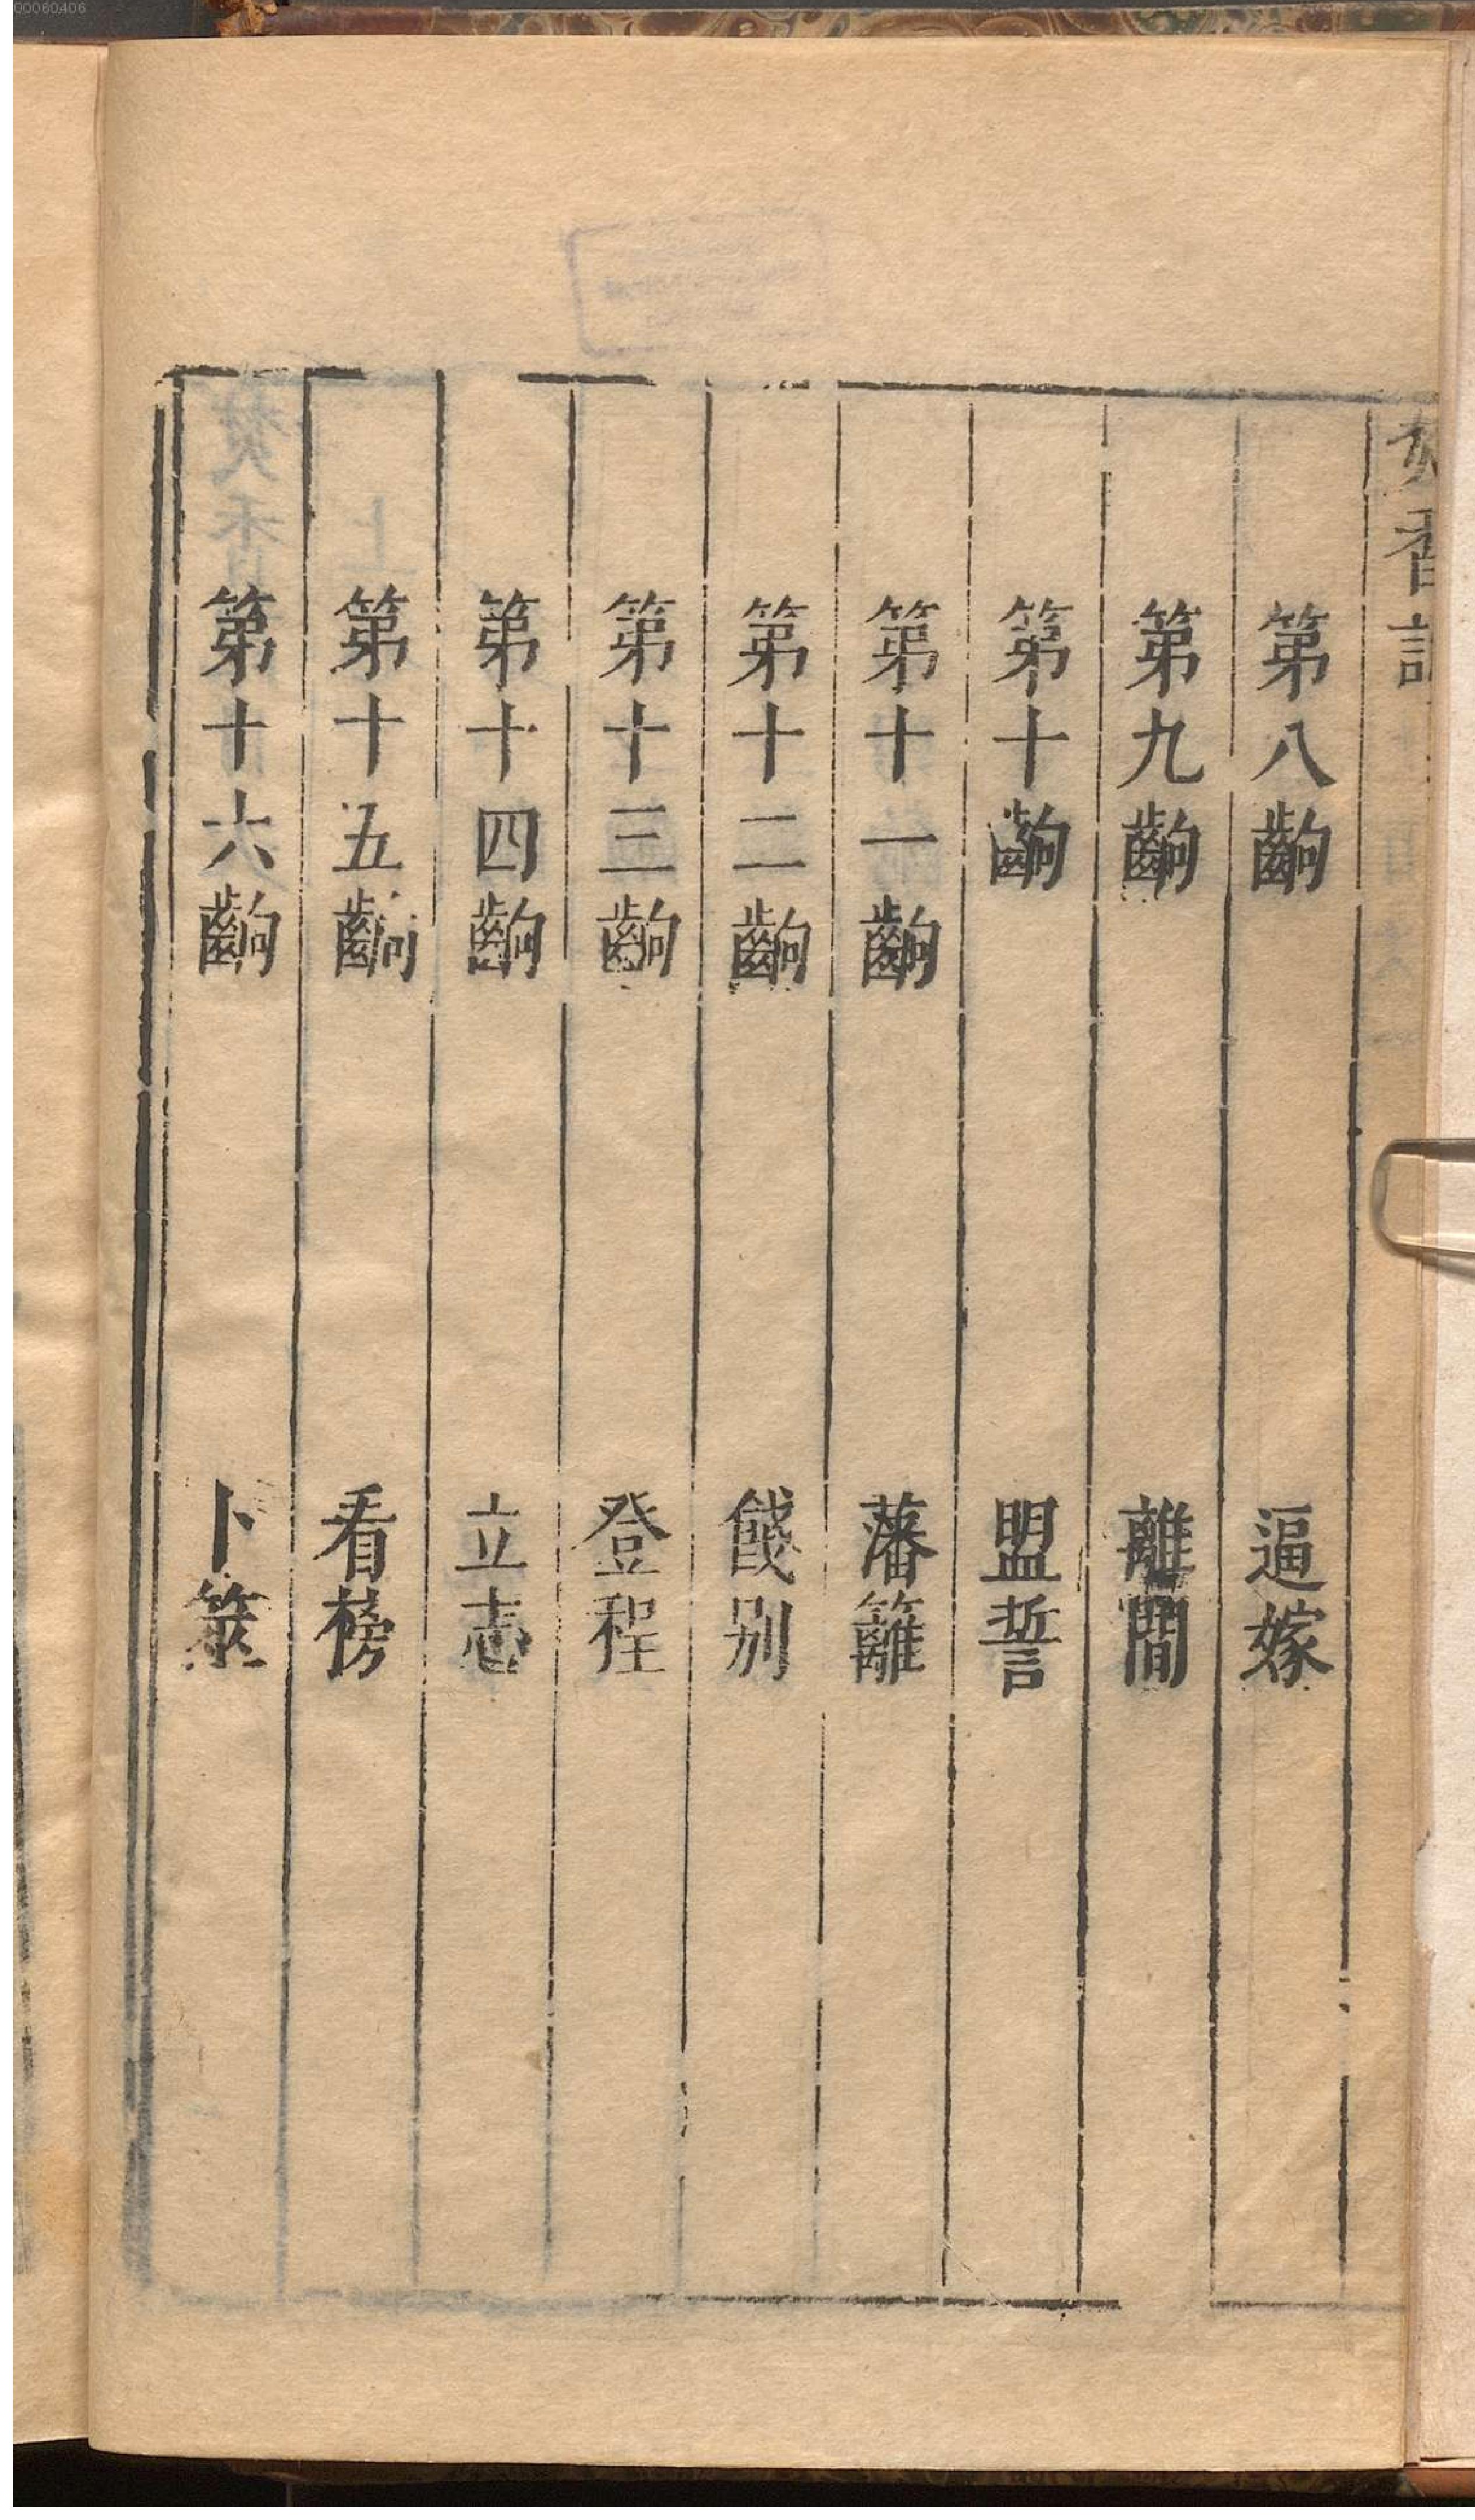 00060406
焚香記
第八齣　逼嫁
第九齣　離間
第十齣　盟誓
第十一齣　藩籬
第十二齣　餞别
第十三齣　登程
第十四齣　立志
第十五齣　看榜
第十六齣　卜筮